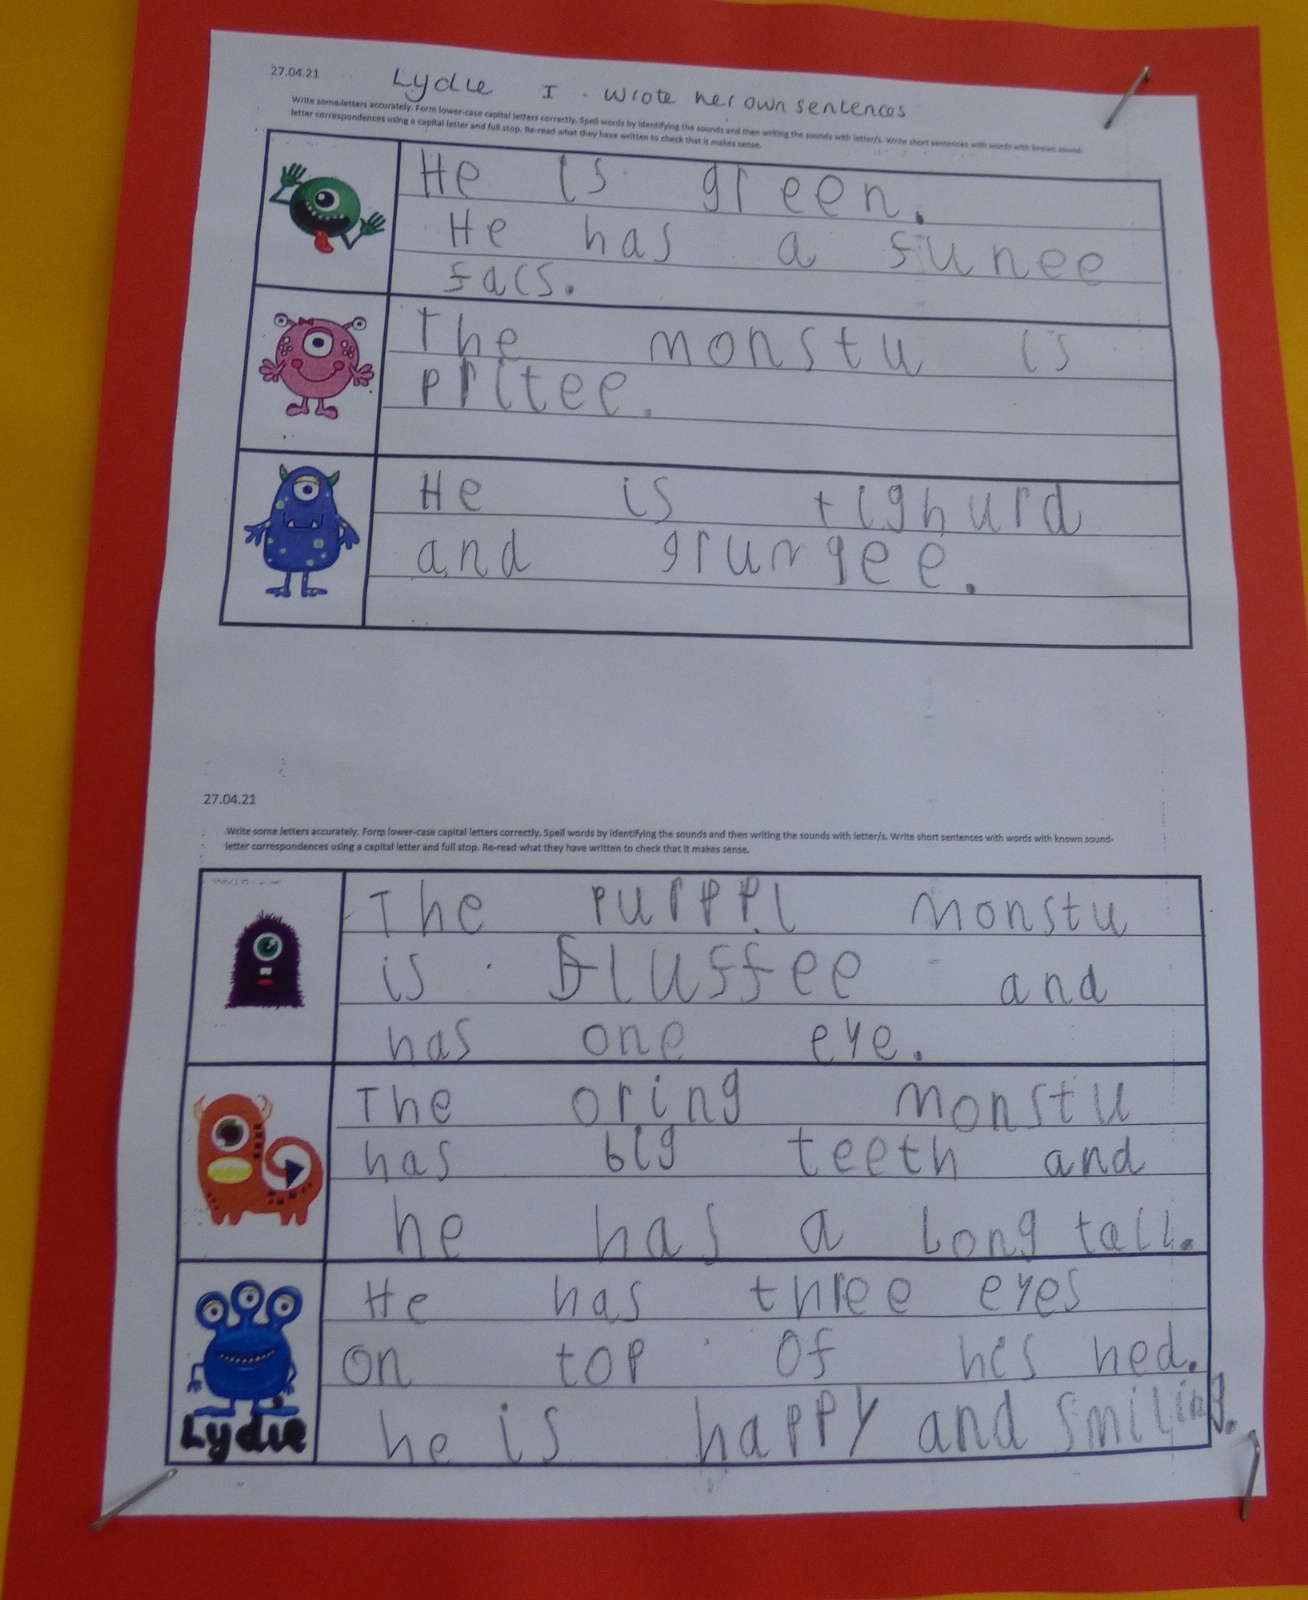 27.04.21
Lydie I - wrote her own sentences
Write some letters accurately. Form lower-case capital letters correctly. Spell words by identifying the sounds and then writing the sounds with letter/s. Write short sentences with words with known sound-
letter correspondences using a capital letter and full stop. Re-read what they have written to check that it makes sense.
He is green.
He has a funee
facs.
The monstu is
pritee.
He is tighurd
and grumgee.
27.04.21
Write some letters accurately. Form lower-case capital letters correctly. Spell words by identifying the sounds and then writing the sounds with letter/s. Write short sentences with words with known sound-
letter correspondences using a capital letter and full stop. Re-read what they have written to check that it makes sense.
The purppl monstu
is fluffee and
has one eye.
The oring monstu
has big teeth and
he has a long tall.
He has three eyes
on top of hes hed.
he is happy and smiling.
Lydie